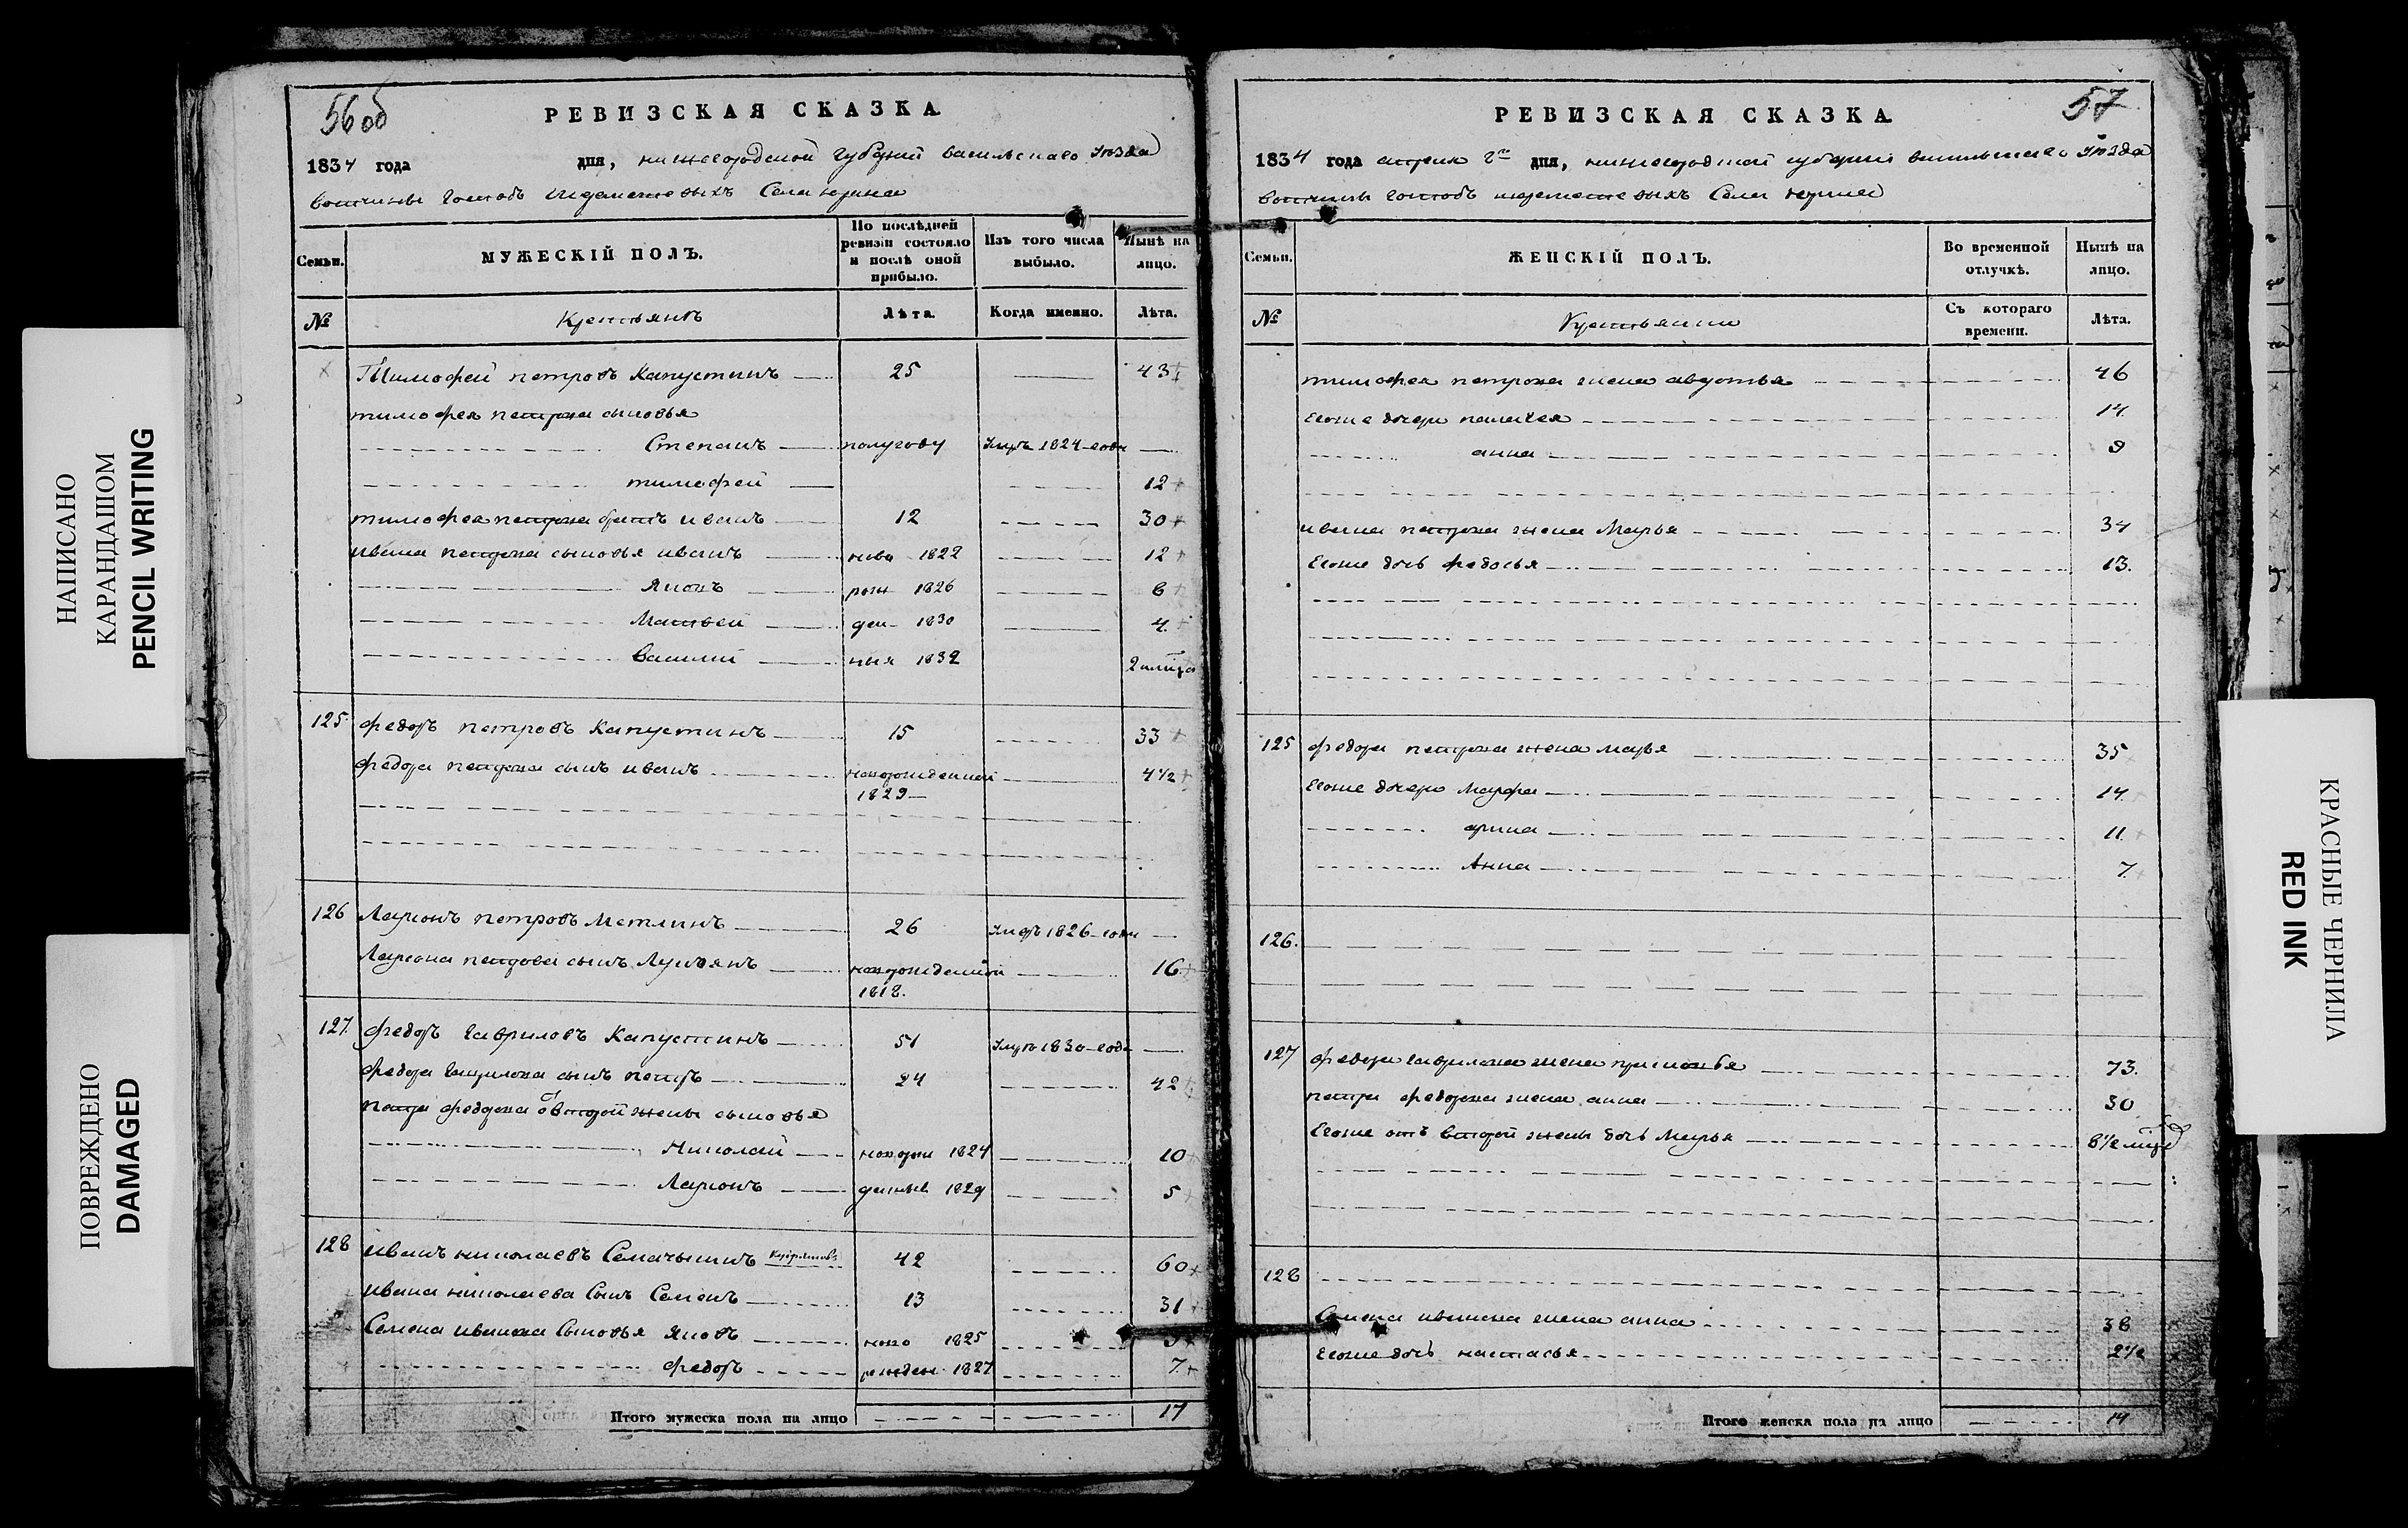 НАПИСАНО
КАРАНДАШОМ
PENCIL WRITING
ПОВРЕЖДЕНО
DAMAGED
56 об
РЕВИЗСКАЯ СКАЗКА
1834 года дня, нижегородской губернии васильскаго уѣзда
вотчины господъ Шереметевыхъ Села юрина
Семьи. МУЖЕСКІЙ ПОЛЪ. По послѣдней ревизіи состояло и послѣ оной прибыло. Изъ того числа выбыло. Нынѣ на лицо.
№ Крестьянъ Лѣта. Когда именно. Лѣта.
Тимофей петровъ Капустинъ 25 43
тимофея петрова сыновья
Степанъ полугоду умръ 1824 года
тимофей 12
тимофея петрова братъ иванъ 12 30
ивана петрова сыновья иванъ ново 1822 12
Яковъ рож 1826 8
Матвей ден 1830 4
Василий ныя 1832 2
125 федоръ петровъ Капустинъ 15 33
федора петрова сынъ иванъ новорожденной 4 1/2
1829
126 Ларионъ петровъ Метлинъ 26 умръ 1826 года
Лариона петрова сынъ Лукьянъ новорожденной 16
1818.
127. федоръ гавриловъ Капустинъ 51 умръ 1830 года
федора гаврилова сынъ петръ 24 42
петра федорова от второй жены сыновья
Николай новорож 1824 10
Ларионъ денные 1829 5
128 иванъ николаевъ Семачькинъ 42 60
ивана николаева Сынъ Семенъ 13 31
Семена иванова Сыновья Яковъ ново 1825 9
федоръ рожден 1827 7
Итого мужеска пола на лицо 17
57
РЕВИЗСКАЯ СКАЗКА
1834 года апреля дня, нижегородской губернии васильскаго уѣзда
вотчины господъ шереметевыхъ Села юрина
Семьи. ЖЕНСКІЙ ПОЛЪ. Во временной отлучкѣ. Нынѣ на лицо.
№ Крестьянки Съ котораго времени. Лѣта.
тимофея петрова жена авдотья 46
Егоже дочери пелагея 14
анна 9
ивана петрова жена Марья 34
Егоже дочь федосья 13.
125 федора петрова жена марья 35
Егоже дочери Марфа 14
арина 11
Анна 7
126.
127 федора гаврилова жена прасковья 73.
петра федорова жена анна 30
Егоже отъ второй жены дочь Марья 8 1/2
128
Семена иванова жена анна 38
Егоже дочь настасья 2 1/2
Итого женска пола на лицо 14
КРАСНЫЕ ЧЕРНИЛА
RED INK